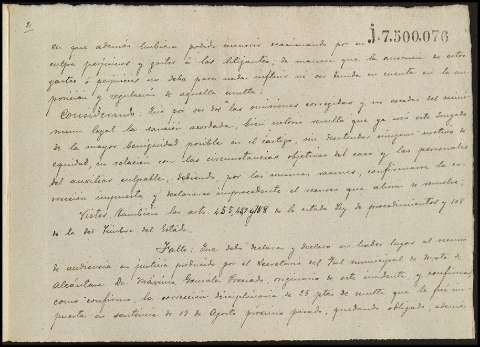 J.7.500.076
en que además hubiera podido incurrir ocasionando por su
culpa perjuicios y gastos á los litigantes, de manera que la ausencia de estos
gastos ó perjuicios no debe para nada influir ni ser tenida en cuenta en la im-
posición y regulación de aquella multa:
Considerando: Que por ser dos las omisiones corregidas y no exceder del míni-
mum legal la sanción acordada, bien notorio resulta que ya usó este Juzgado
de la mayor benignidad posible en el castigo, sin desatender ningún motivo de
equidad, en relación con las circunstancias objetivas del caso y las personales
del auxiliar culpable, debiendo por las mismas razones, confirmarse la co-
rrección impuesta y declararse improcedente el recurso que ahora se resuelve;
Vistos también los arts. 455, 459 y 468 de la citada Ley de procedimientos y 108
de la del Timbre del Estado.
Fallo: Que debo declarar y declaro no haber lugar al recurso
de audiencia en justicia producido por el Secretario del Jdo. municipal de
Alcántara Dn. González originario de este incidente, y confirmar
como confirmo, la corrección disciplinaria de 25 ptas de multa que le fué im-
puesta en sentencia de 13 de Agosto próximo pasado, quedando obligado, además